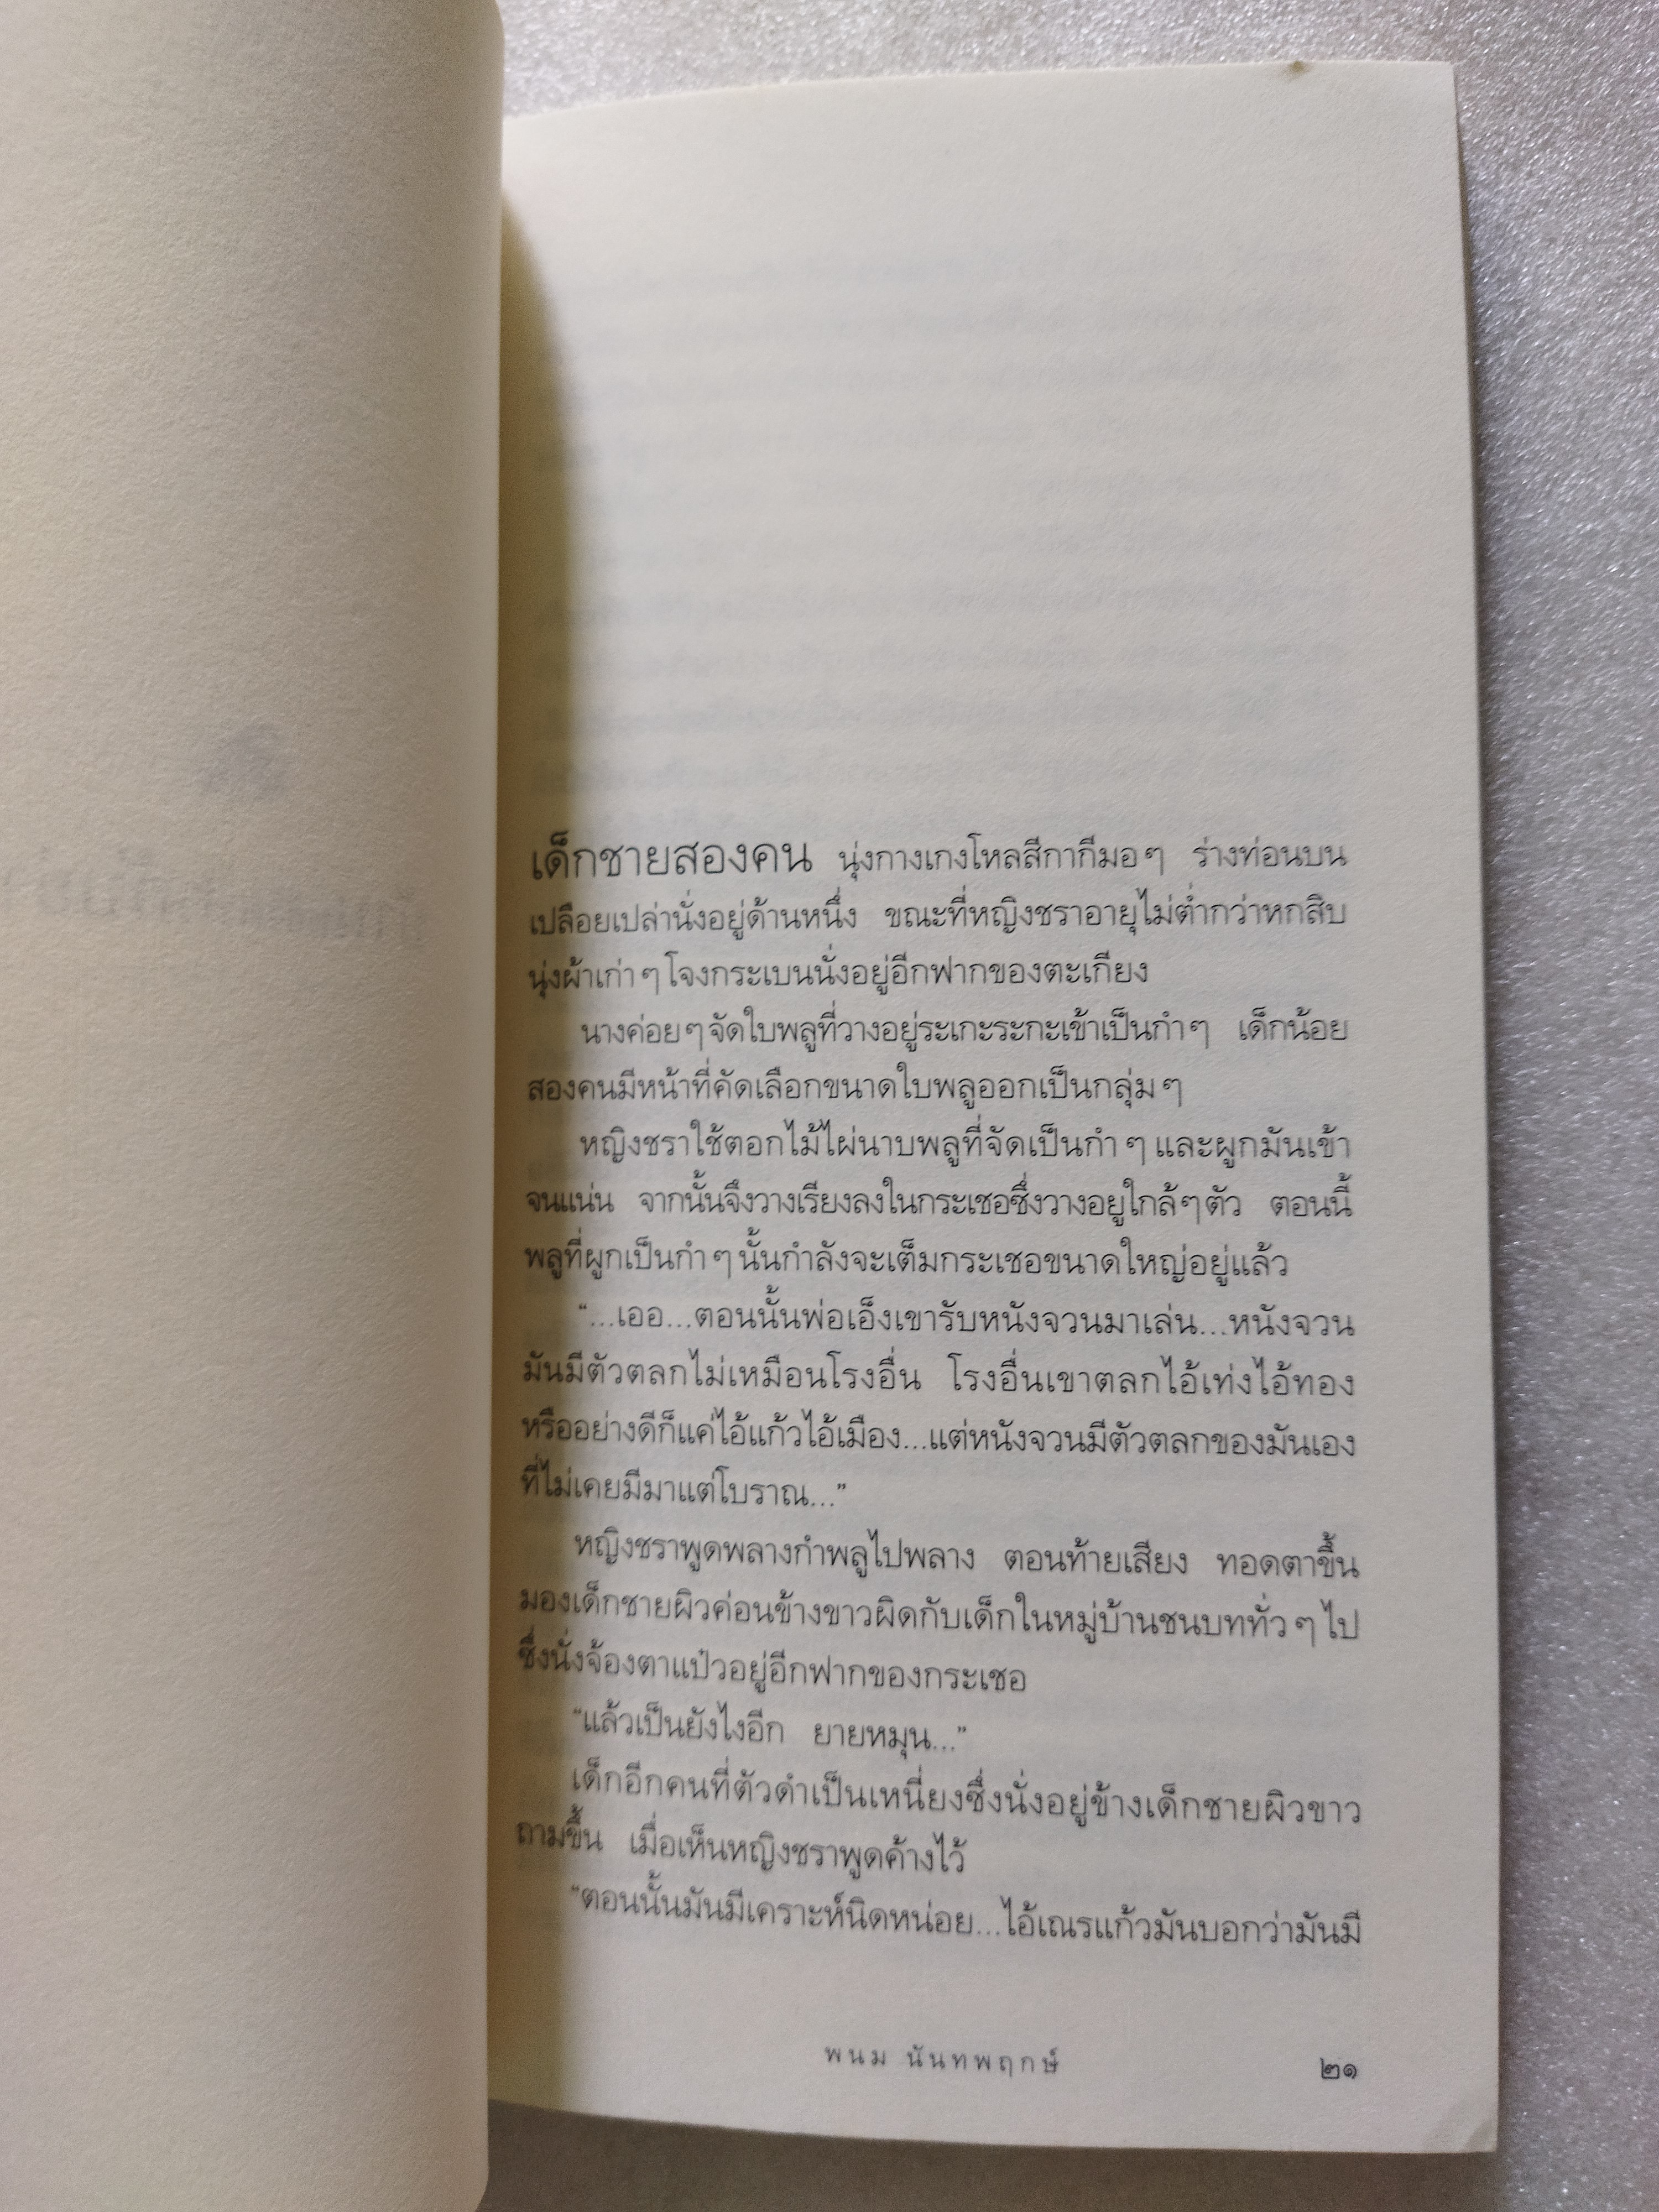 เด็กชายสองคน นุ่งกางเกงโหลสีกากีมอๆ ร่างท่อนบน
เปลือยเปล่านั่งอยู่ด้านหนึ่ง ขณะที่หญิงชราอายุไม่ต่ำกว่าหกสิบ
นุ่งผ้าเก่าๆ โจงกระเบนนั่งอยู่อีกฟากของตะเกียง
นางค่อยๆ จัดใบพลูที่วางอยู่ระเกะระกะเข้าเป็นกำๆ เด็กน้อย
สองคนมีหน้าที่คัดเลือกขนาดใบพลูออกเป็นกลุ่มๆ
หญิงชราใช้ตอกไม้ไผ่นาบพลูที่จัดเป็นกำๆ และผูกมันเข้า
จนแน่น จากนั้นจึงวางเรียงลงในกระเชอซึ่งวางอยู่ใกล้ๆ ตัว ตอนนี้
พลูที่ผูกเป็นกำๆ นั้นกำลังจะเต็มกระเชอขนาดใหญ่อยู่แล้ว
“...เออ...ตอนนั้นพ่อเอ็งเขารับหนังจวนมาเล่น...หนังจวน
มันมีตัวตลกไม่เหมือนโรงอื่น โรงอื่นเขาตลกไอ้เท่งไอ้ทอง
หรืออย่างดีก็แค่ไอ้แก้วไอ้เมือง...แต่หนังจวนมีตัวตลกของมันเอง
ที่ไม่เคยมีมาแต่โบราณ...”
หญิงชราพูดพลางกำพลูไปพลาง ตอนท้ายเสียง ทอดตาขึ้น
มองเด็กชายผิวค่อนข้างขาวผิดกับเด็กในหมู่บ้านชนบททั่วๆ ไป
ซึ่งนั่งจ้องตาแป๋วอยู่อีกฟากของกระเชอ
“แล้วเป็นยังไงอีก ยายหมุน...”
เด็กอีกคนที่ตัวดำเป็นเหนี่ยงซึ่งนั่งอยู่ข้างเด็กชายผิวขาว
ถามขึ้น เมื่อเห็นหญิงชราพูดค้างไว้
“ตอนนั้นมันมีเคราะห์นิดหน่อย...ไอ้เณรแก้วมันบอกว่ามันมี
พนม นันทพฤกษ์
๒๑